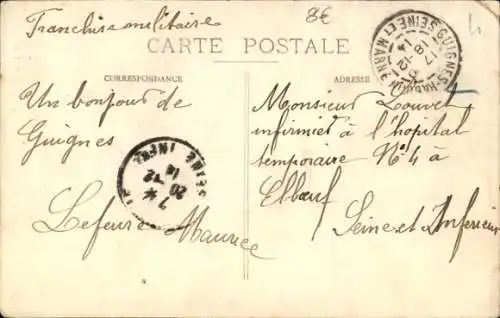 Franchise militaire
8€
CARTE POSTALE
CORRESPONDANCE
ADRESSE
GUIGNES-RABUTIN
SEINE ET MARNE
17
18-12
14
Un bonjour de
Guignes
Lefeure Maurice
Monsieur Louvet
infirmier à l'hopital
temporaire N°4 à
Elbeuf
Seine et Inferieur
SEINE INFRE
7 *
20 12
14